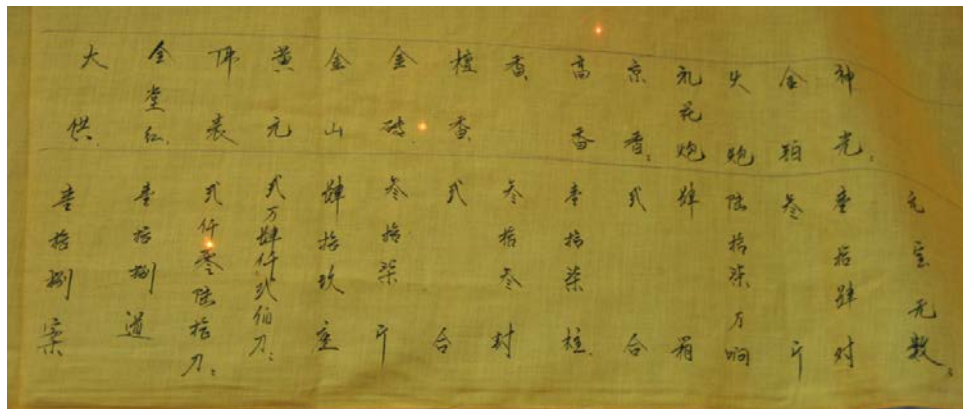 元宝无数。
神光：壹拾肆对
金珀叁斤
火炮陆拾柒万响
礼花炮肆箱
京香：弍合
高香壹拾柒柱
香叁拾叁封
檀香弍合
金砖叁拾柒斤
金山肆拾玖座
黄元弍万肆仟弍伯刀：
佛表弍仟零陆拾刀：
全堂红壹拾捌道
大供壹拾捌案